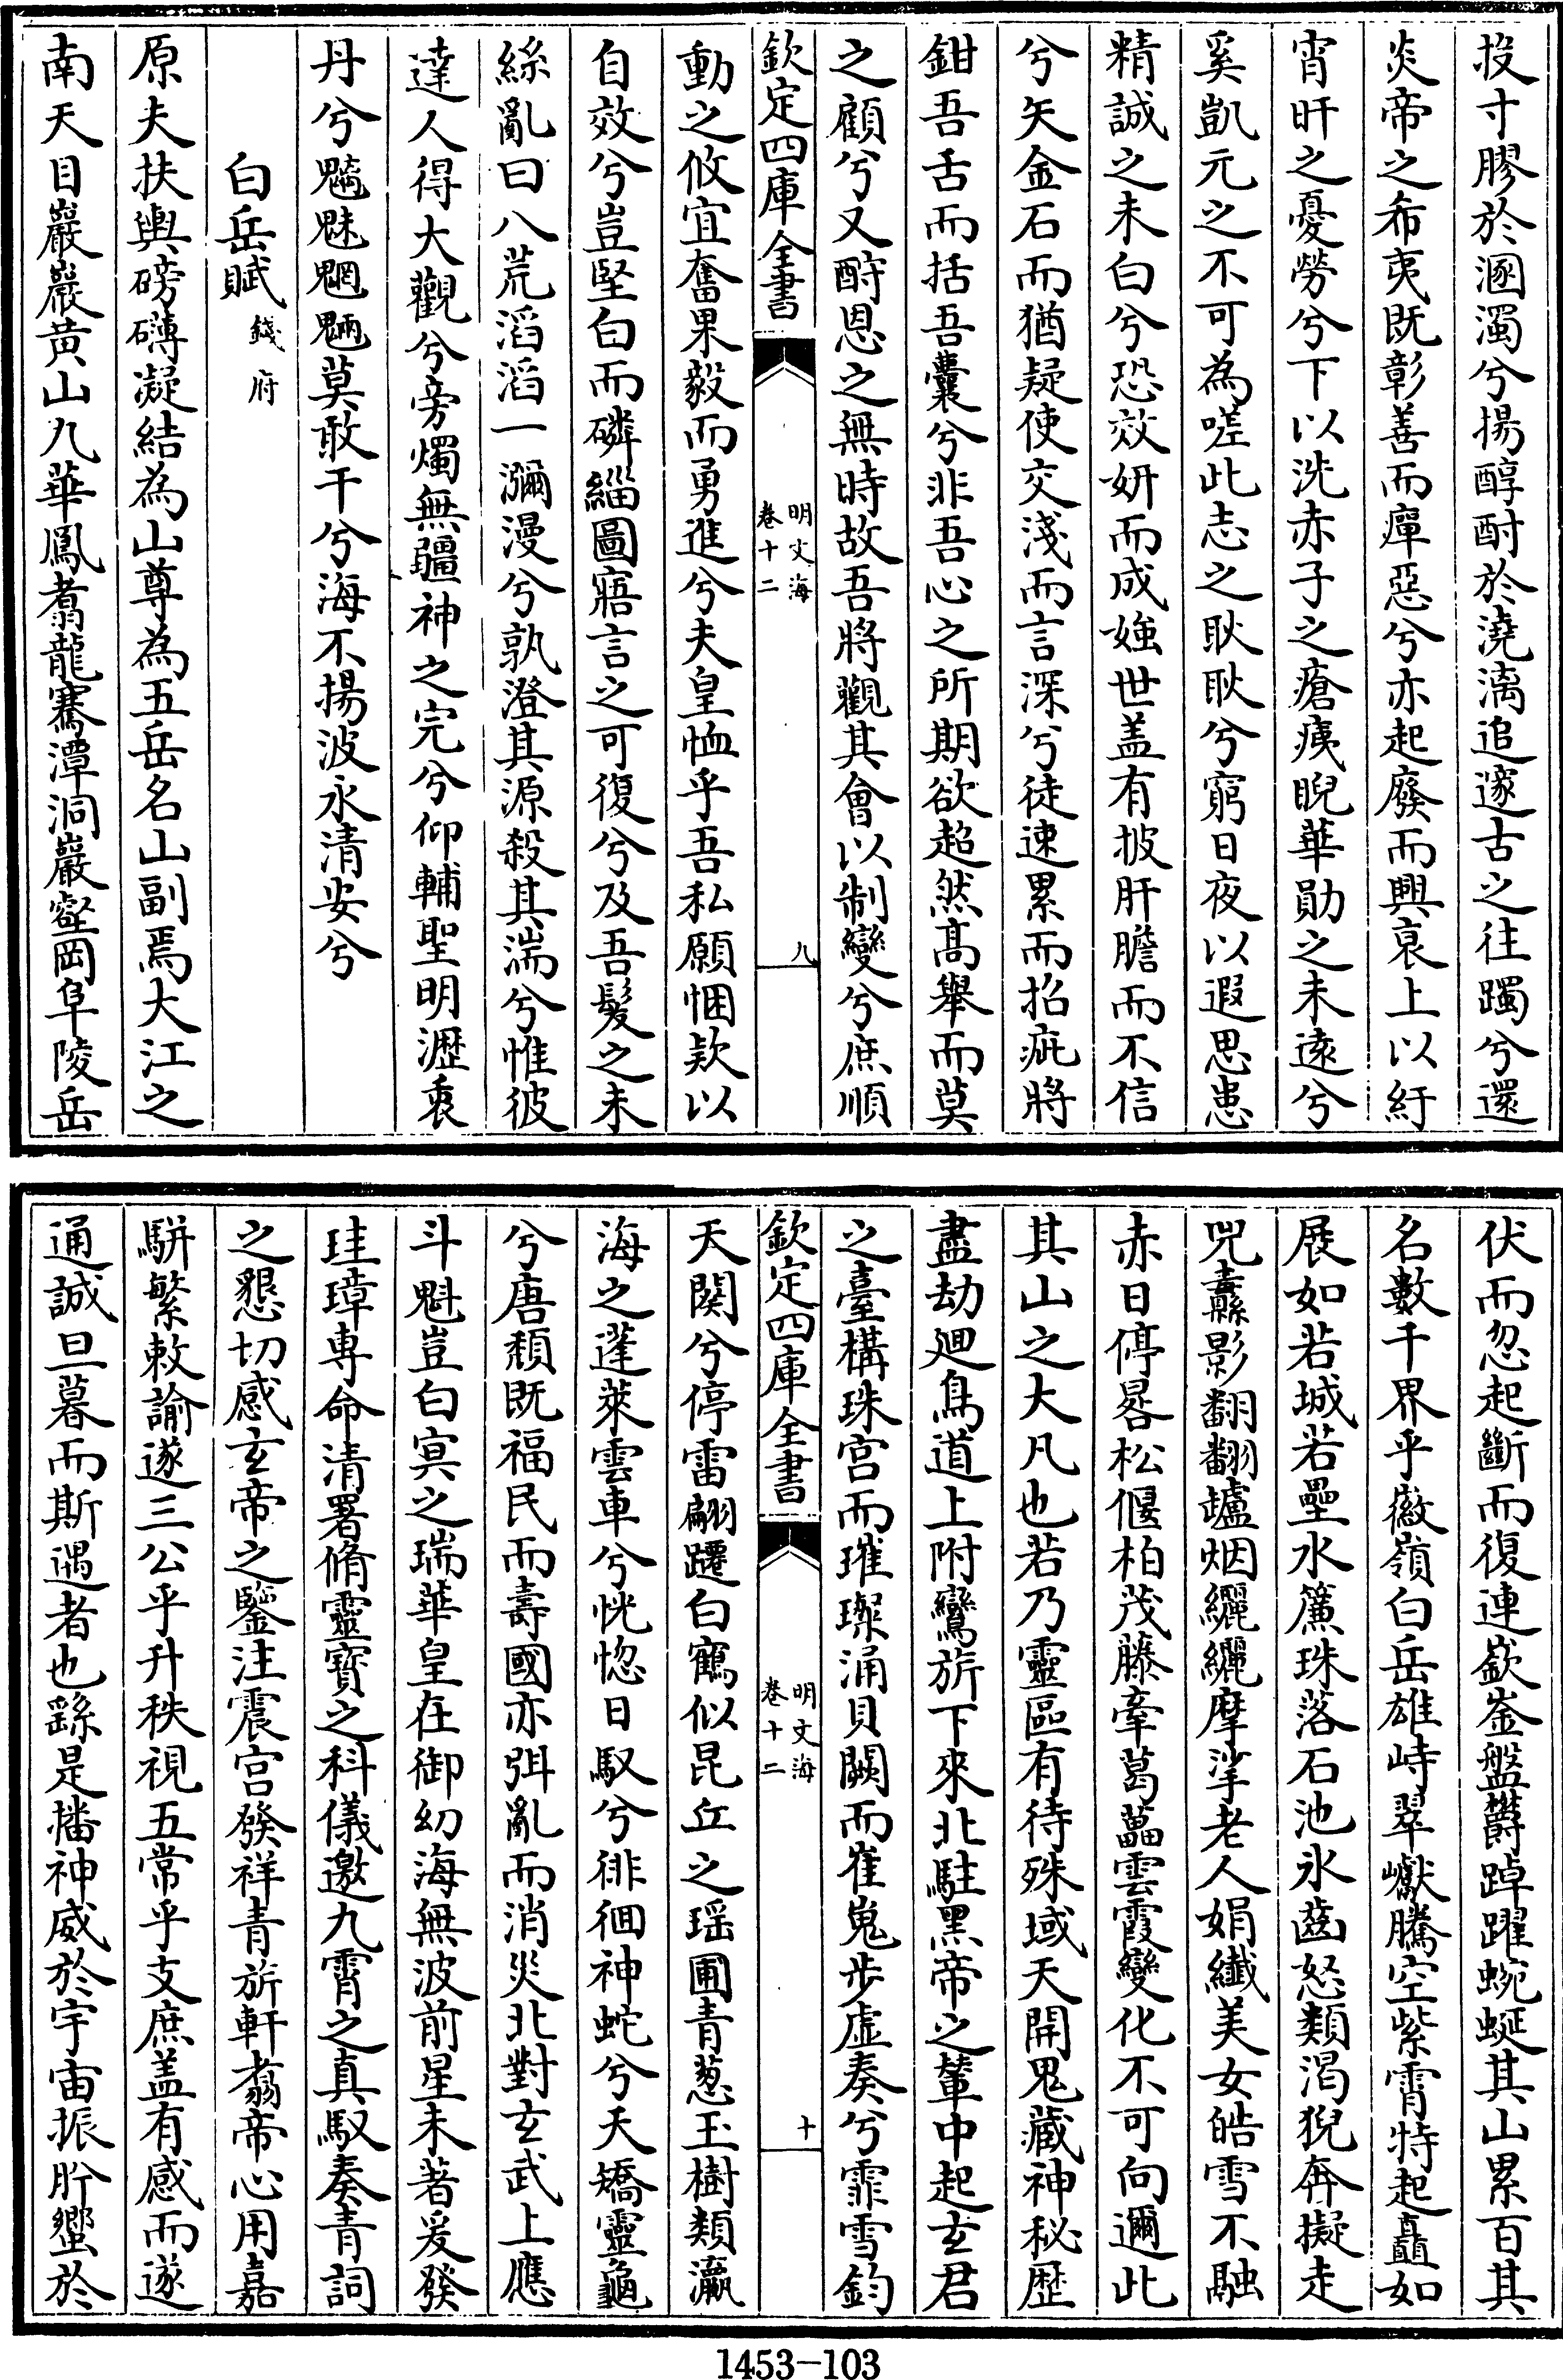 投寸膠於溷濁兮揚醇酎於澆漓追邃古之往躅兮還
炎帝之布夷既彰善而癉惡兮亦起廢而興哀上以紓
宵旰之憂勞兮下以洗赤子之瘡痍睨華勛之未遠兮
奚凱元之不可為嗟此志之耿耿兮窮日夜以遐思患
精誠之未白兮恐效妍而成媸世盖有披肝膽而不信
兮矢金石而猶疑使交淺而言深兮徒速累而招疵將
鉗吾舌而括吾囊兮非吾心之所期欲超然髙舉而莫
之顧兮又酧恩之無時故吾將觀其會以制變兮庶順
欽定四庫全書
明文海
卷十二
九
動之攸宜奮果毅而勇進兮夫皇恤乎吾私願悃欵以
自效兮豈堅白而磷緇圖寤言之可復兮及吾髪之未
絲亂曰八荒滔滔一瀰漫兮孰澄其源殺其湍兮惟彼
達人得大觀兮旁燭無疆神之完兮仰輔聖明瀝衷
丹兮魑魅魍魎莫敢干兮海不揚波永清安兮
白岳賦錢府
原夫扶輿磅礴凝結為山尊為五岳名山副焉大江之
南天目巖巖黄山九華鳳翥龍騫潭洞巖壑岡阜陵岳
伏而忽起斷而復連嶔崟盤欝踔躍蜿蜒其山累百其
名數千界乎徽嶺白岳雄峙翠巘騰空紫霄特起矗如
展如若城若壘水簾珠落石池氷齒怒類渴猊奔擬走
兕纛影翻翻罏烟纚纚摩挲老人娟纖美女皓雪不融
赤日停晷松偃柏茂藤牽葛藟雲霞變化不可向邇此
其山之大凡也若乃靈區有待殊域天開鬼藏神秘歴
盡劫廻鳥道上附鸞旂下來北駐黒帝之輦中起玄君
之臺構珠宫而璀璨涌貝闕而崔嵬步虚奏兮霏雪鈞
欽定四庫全書
明文海
卷十二
十
天関兮停雷翩躚白鶴似昆丘之瑶圃青葱玉樹類瀛
海之蓬萊雲車兮恍惚日馭兮徘徊神蛇兮天矯靈龜
兮唐頽既福民而壽國亦弭亂而消災北對玄武上應
斗魁豈白冥之瑞華皇在御幼海無波前星未著爰發
珪璋専命清署脩靈寳之科儀邀九霄之真馭奏青詞
之懇切感玄帝之鑒注震宫發祥青旂軒翥帝心用嘉
駢繁敕諭遂三公乎升秩視五常乎支庶盖有感而遂
通誠旦暮而斯遇者也繇是播神威於宇宙振肸蠁於
1453-103